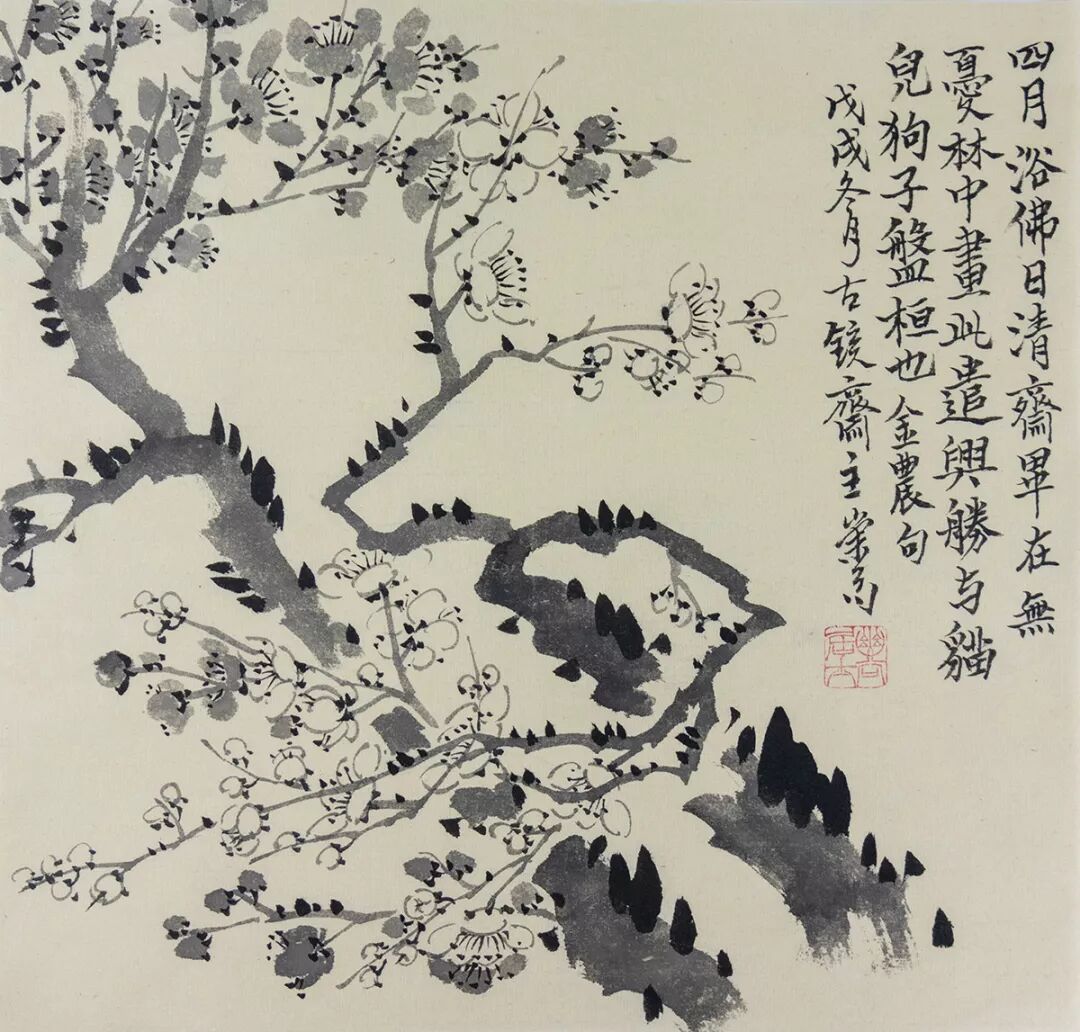 四月浴佛日清齋畢在無
憂林中畫此遣興勝与貓
兒狗子盤桓也 金農句
戊戌冬月古鏡齋主崇